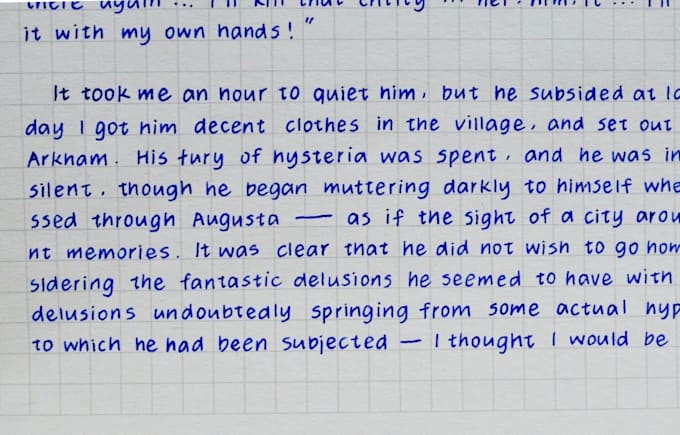 there again ... I'll kill that entity ... her, him, it ... I'll
it with my own hands!"
It took me an hour to quiet him, but he subsided at la
day I got him decent clothes in the village, and set out
Arkham. His fury of hysteria was spent, and he was in
silent, though he began muttering darkly to himself whe
ssed through Augusta — as if the sight of a city arou
nt memories. It was clear that he did not wish to go hom
sidering the fantastic delusions he seemed to have with
delusions undoubtedly springing from some actual hyp
to which he had been subjected — I thought I would be